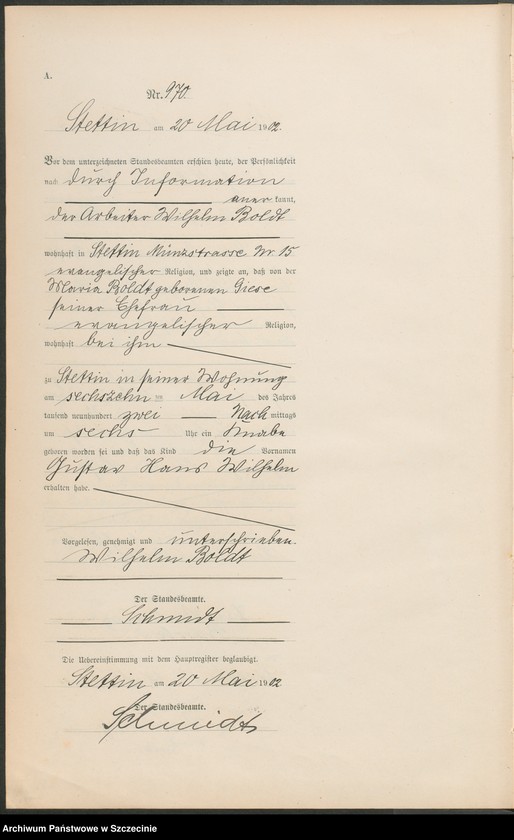 A.
Nr. 970.
Stettin am 20 Mai 1902.
Vor dem unterzeichneten Standesbeamten erschien heute, der Persönlichkeit
nach durch Information
aner kannt,
der Arbeiter Wilhelm Boldt
wohnhaft in Stettin Münzstrasse Nr 15
evangelischer Religion, und zeigte an, daß von der
Maria Boldt geborenen Giese
seiner Ehefrau
evangelischer Religion,
wohnhaft bei ihm
zu Stettin in seiner Wohnung
am sechszehn ten Mai des Jahres
tausend neunhundert zwei Nach mittags
um sechs Uhr ein Knabe
geboren worden sei und daß das Kind die Vornamen
Gustav Hans Wilhelm
erhalten habe.
Vorgelesen, genehmigt und unterschrieben.
Wilhelm Boldt
Der Standesbeamte.
Schmidt
Die Uebereinstimmung mit dem Hauptregister beglaubigt.
Stettin am 20 Mai 1902
Der Standesbeamte.
Schmidt
Archiwum Państwowe w Szczecinie